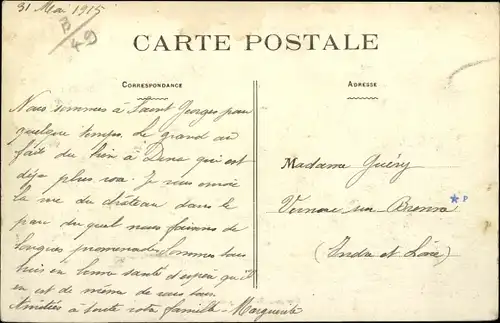 31 Mai 1915
B/49
CARTE POSTALE
CORRESPONDANCE
ADRESSE
Nous sommes à Saint Georges pour
quelque temps. Le grand air
fait du bien à Dana qui est
déjà plus rose. Je vous envoie
la vue du château dans le
parc du quel nous faisons de
longues promenades. Sommes tous
trois en bonne santé et espère qu'il
en est de même de vous tous.
Amitiés à toute votre famille - Marguerite
Madame Guéry
Vernou sur Brenne
(Indre et Loire)
P